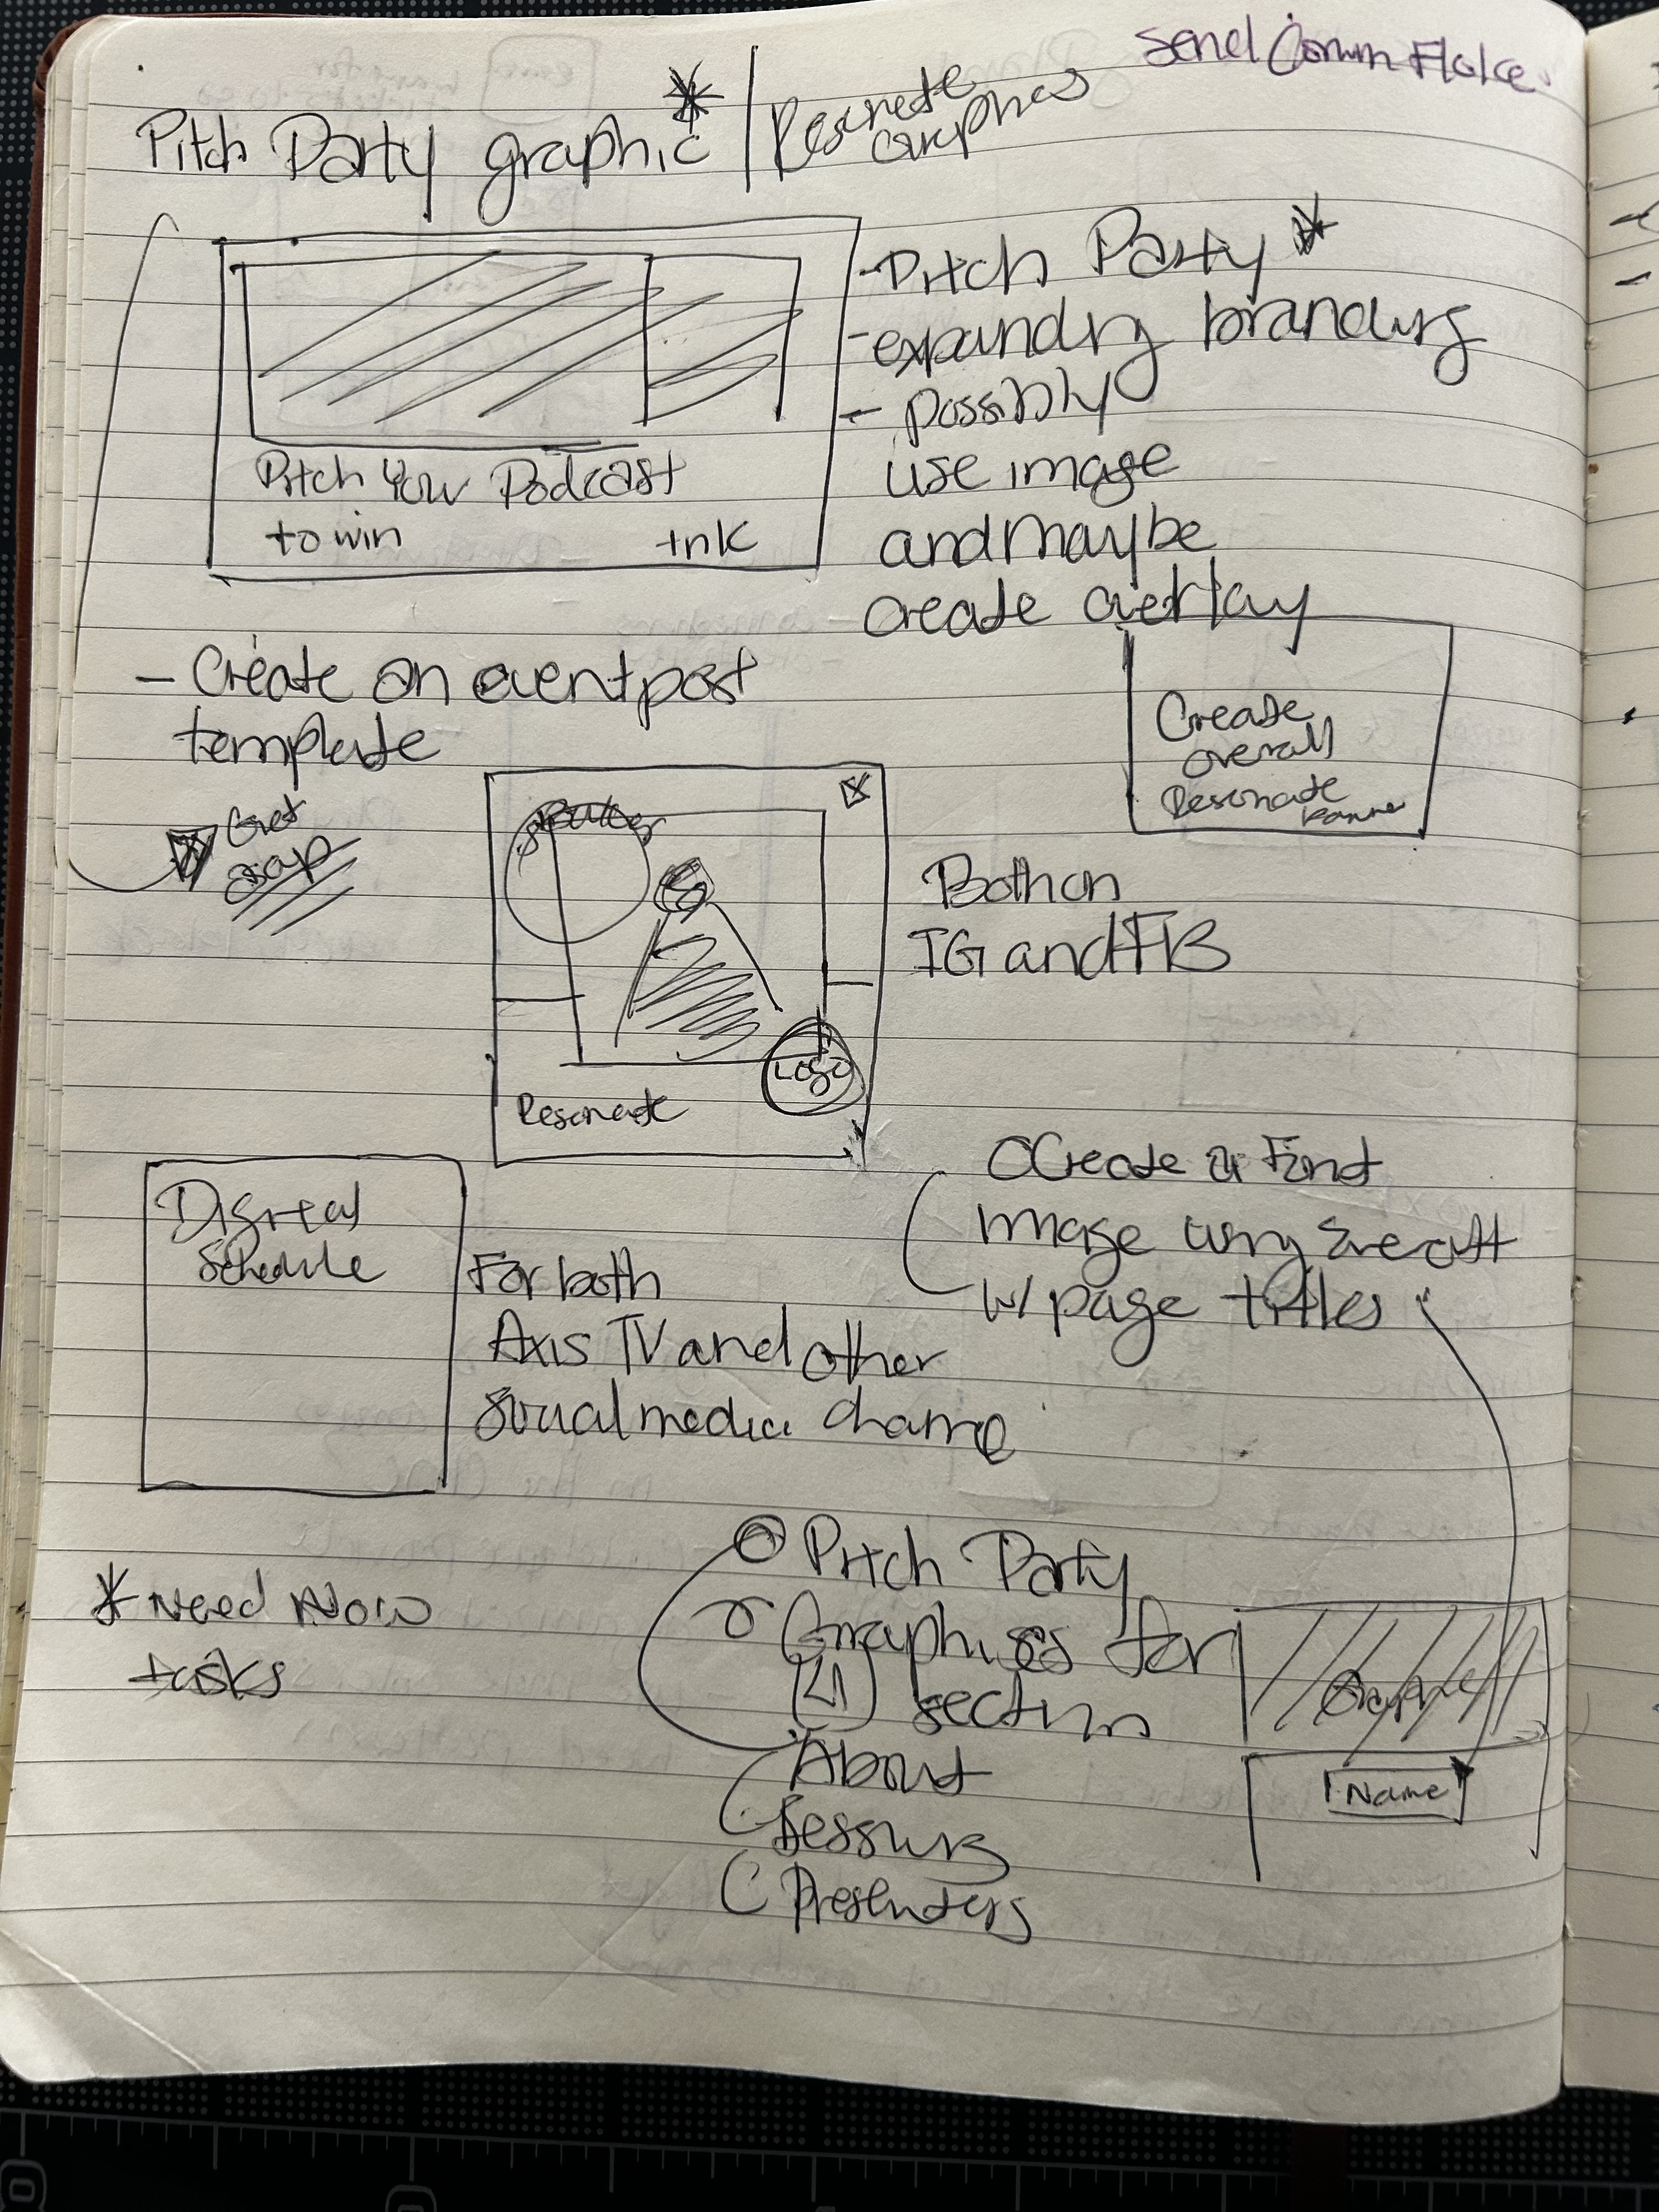 Send Comm Flake
Pitch Party graphic * / Resonate
Graphics
- Pitch Party *
- expanding branding
- possibly
use image
and maybe
create overlay
Pitch Your Podcast
to win
- Create an event post
template
Create
overall
Resonate
banner
Get
asap
speaker
Logo
Resonate
Both on
IG and FB
Create or Find
image using
w/ page titles
Digital
Schedule
For both
Axis TV and other
social media
* Need Now
tasks
Pitch Party
Graphics for
4 section
About
Sessions
Presenters
Graphic
Name